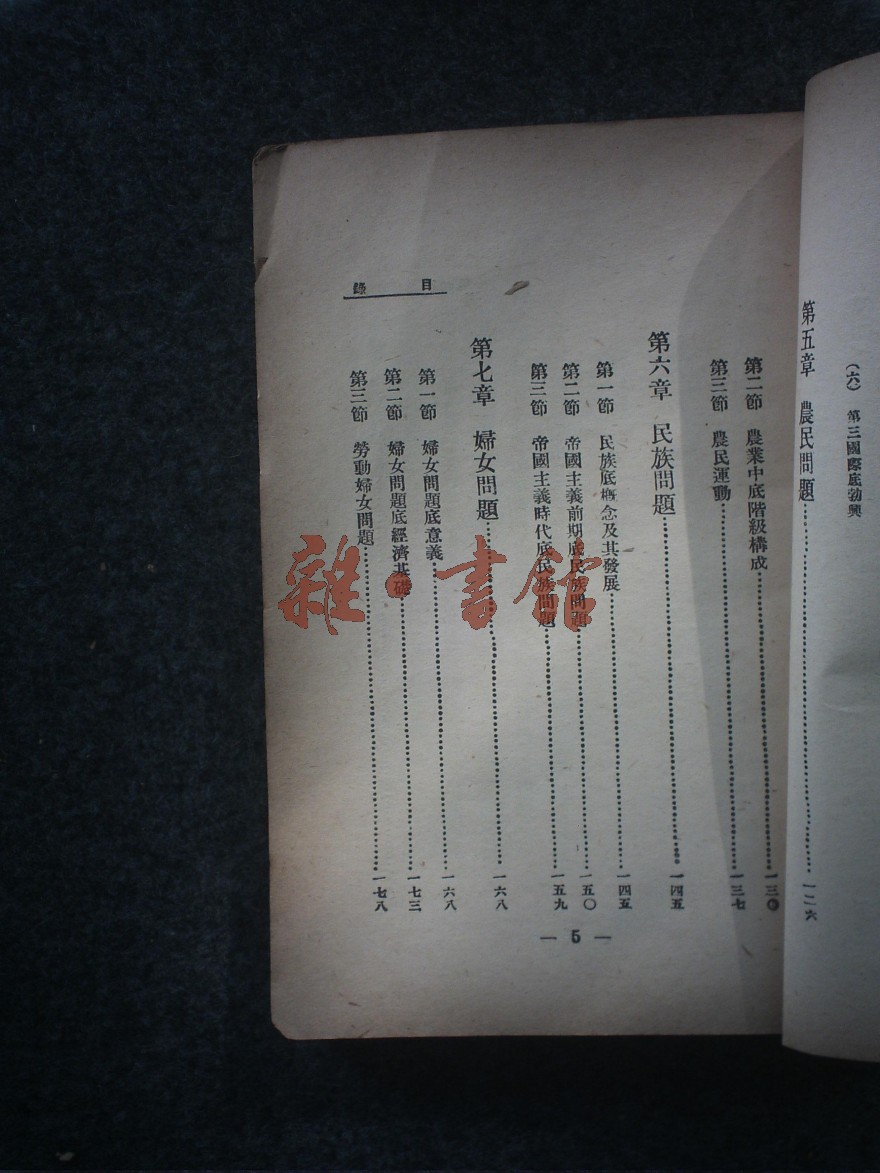 (六) 第三國際底勃興
第五章 農民問題……一二六
第二節 農業中底階級構成……一三〇
第三節 農民運動……一三七
第六章 民族問題……一四五
第一節 民族底概念及其發展……一四五
第二節 帝國主義前期底民族問題……一五〇
第三節 帝國主義時代底民族問題……一五九
第七章 婦女問題……一六八
第一節 婦女問題底意義……一六八
第二節 婦女問題底經濟基礎……一七三
第三節 勞動婦女問題……一七八
目錄
— 5 —
雜·書館